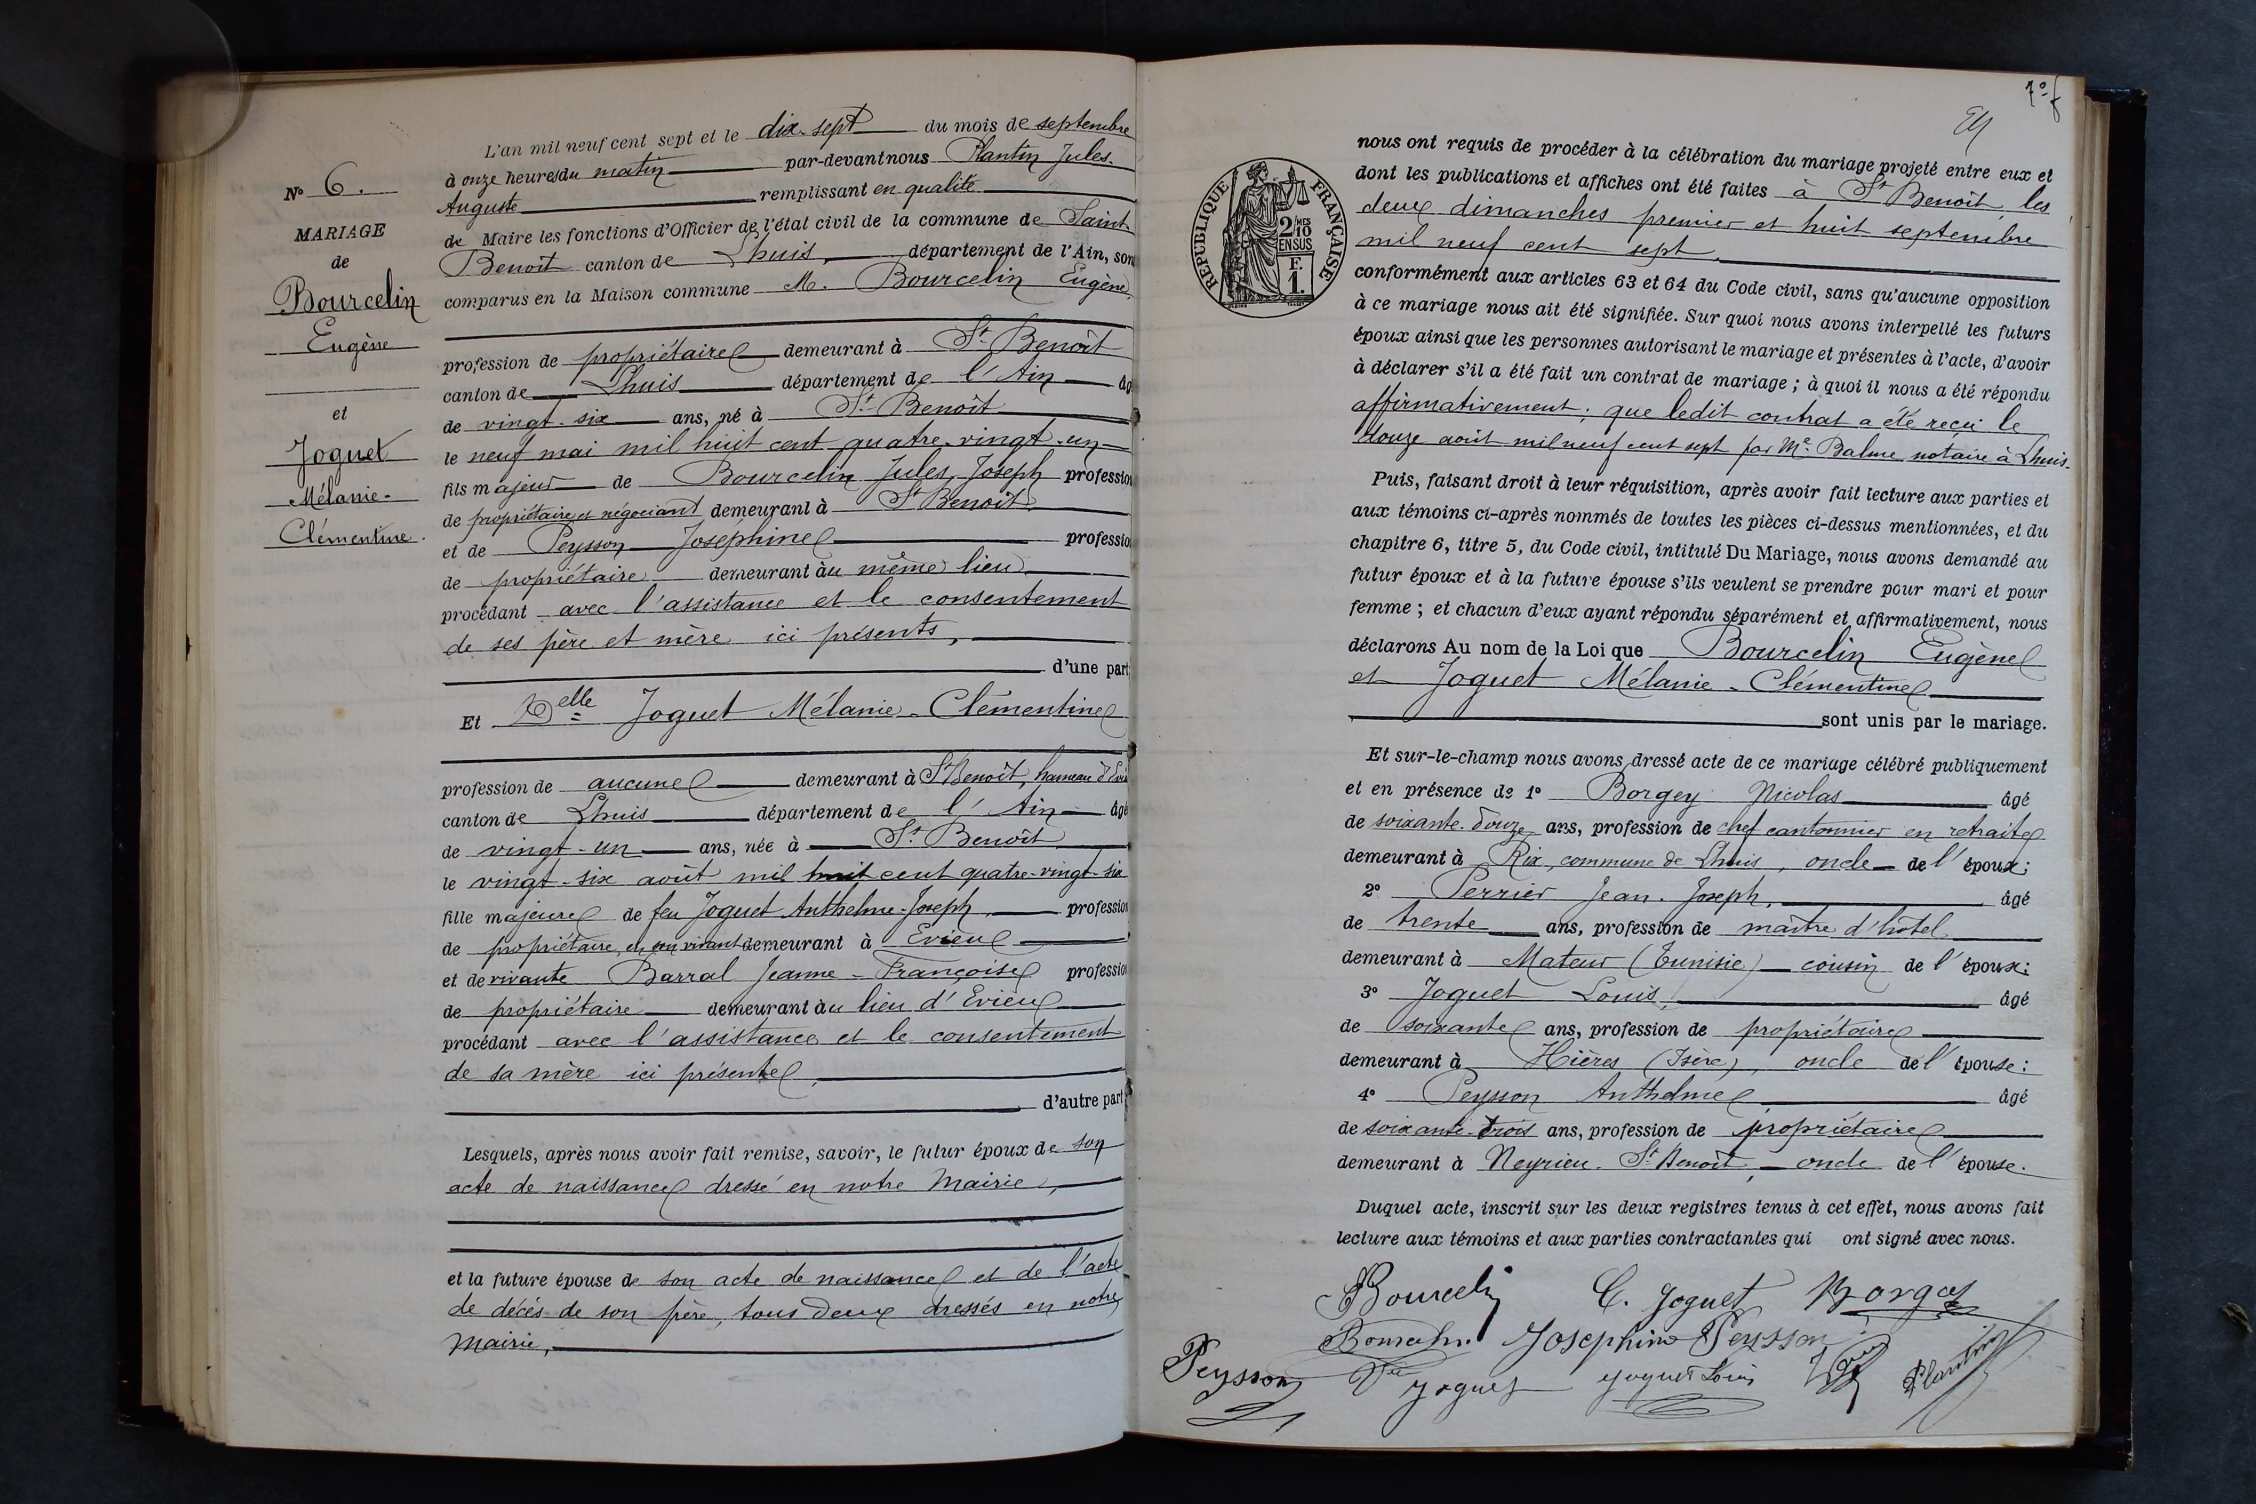 L'an mil neuf cent sept et le dix-sept du mois de septembre
à onze heures du matin par-devant nous Plantin Jules-
Auguste remplissant en qualité
de Maire les fonctions d'Officier de l'état civil de la commune de Saint-
Benoît canton de Lhuis, département de l'Ain, son
comparus en la Maison commune M. Bourcelin Eugène,
profession de propriétaire demeurant à St Benoît
canton de Lhuis département de l'Ain âg
de vingt-six ans, né à St Benoît
le neuf mai mil huit cent quatre-vingt-un
fils majeur de Bourcelin Jules, Joseph profession
de propriétaire et négociant demeurant à St Benoît
et de Peysson Joséphine professio
de propriétaire demeurant au même lieu
procédant avec l'assistance et le consentement
de ses père et mère ici présents,
d'une part
Et Delle Joguet Mélanie-Clémentine
profession de aucune demeurant à St Benoît, hameau d'
canton de Lhuis département de l'Ain âgé
de vingt-un ans, née à St Benoît
le vingt-six août mil huit cent quatre-vingt-six
fille majeure de feu Joguet Anthelme-Joseph, profession
de propriétaire, en son vivant demeurant à Evieu
et de vivante Barral Jeanne-Françoise profession
de propriétaire demeurant au lieu d'Evieu
procédant avec l'assistance et le consentement
de sa mère ici présente,
d'autre part;
Lesquels, après nous avoir fait remise, savoir, le futur époux de son
acte de naissance dressé en notre Mairie,
et la future épouse de son acte de naissance et de l'acte
de décès de son père, tous deux dressés en notre
Mairie,
No 6.
MARIAGE
de
Bourcelin
Eugène
et
Joguet
Mélanie-
Clémentine.
7°f
REPUBLIQUE FRANÇAISE
2/10 MES
EN SUS
F.
1.
nous ont requis de procéder à la célébration du mariage projeté entre eux et
dont les publications et affiches ont été faites à St Benoît les
deux dimanches premier et huit septembre
mil neuf cent sept,
conformément aux articles 63 et 64 du Code civil, sans qu'aucune opposition
à ce mariage nous ait été signifiée. Sur quoi nous avons interpellé les futurs
époux ainsi que les personnes autorisant le mariage et présentes à l'acte, d'avoir
à déclarer s'il a été fait un contrat de mariage; à quoi il nous a été répondu
affirmativement; que ledit contrat a été reçu le
douze août mil neuf cent sept par Me Balme notaire à Lhuis.
Puis, faisant droit à leur réquisition, après avoir fait lecture aux parties et
aux témoins ci-après nommés de toutes les pièces ci-dessus mentionnées, et du
chapitre 6, titre 5, du Code civil, intitulé Du Mariage, nous avons demandé au
futur époux et à la future épouse s'ils veulent se prendre pour mari et pour
femme; et chacun d'eux ayant répondu séparément et affirmativement, nous
déclarons Au nom de la Loi que Bourcelin Eugène
et Joguet Mélanie-Clémentine
sont unis par le mariage.
Et sur-le-champ nous avons dressé acte de ce mariage célébré publiquement
et en présence de 1° Borgey Nicolas âgé
de soixante-douze ans, profession de chef cantonnier en retraite
demeurant à Rix, commune de Lhuis, oncle de l'époux;
2° Perrier Jean-Joseph, âgé
de trente ans, profession de maître d'hôtel
demeurant à Mateur (Tunisie) cousin de l'époux;
3° Joguet Louis, âgé
de soixante ans, profession de propriétaire
demeurant à Hières (Isère), oncle de l'épouse;
4° Peysson Anthelme âgé
de soixante-trois ans, profession de propriétaire
demeurant à Neyrieu-St Benoît, oncle de l'épouse.
Duquel acte, inscrit sur les deux registres tenus à cet effet, nous avons fait
lecture aux témoins et aux parties contractantes qui ont signé avec nous.
Bourcelin C. Joguet Borgey
Bourcelin Josephine Peysson
Peysson Vve Joguet Joguet Louis Plantin